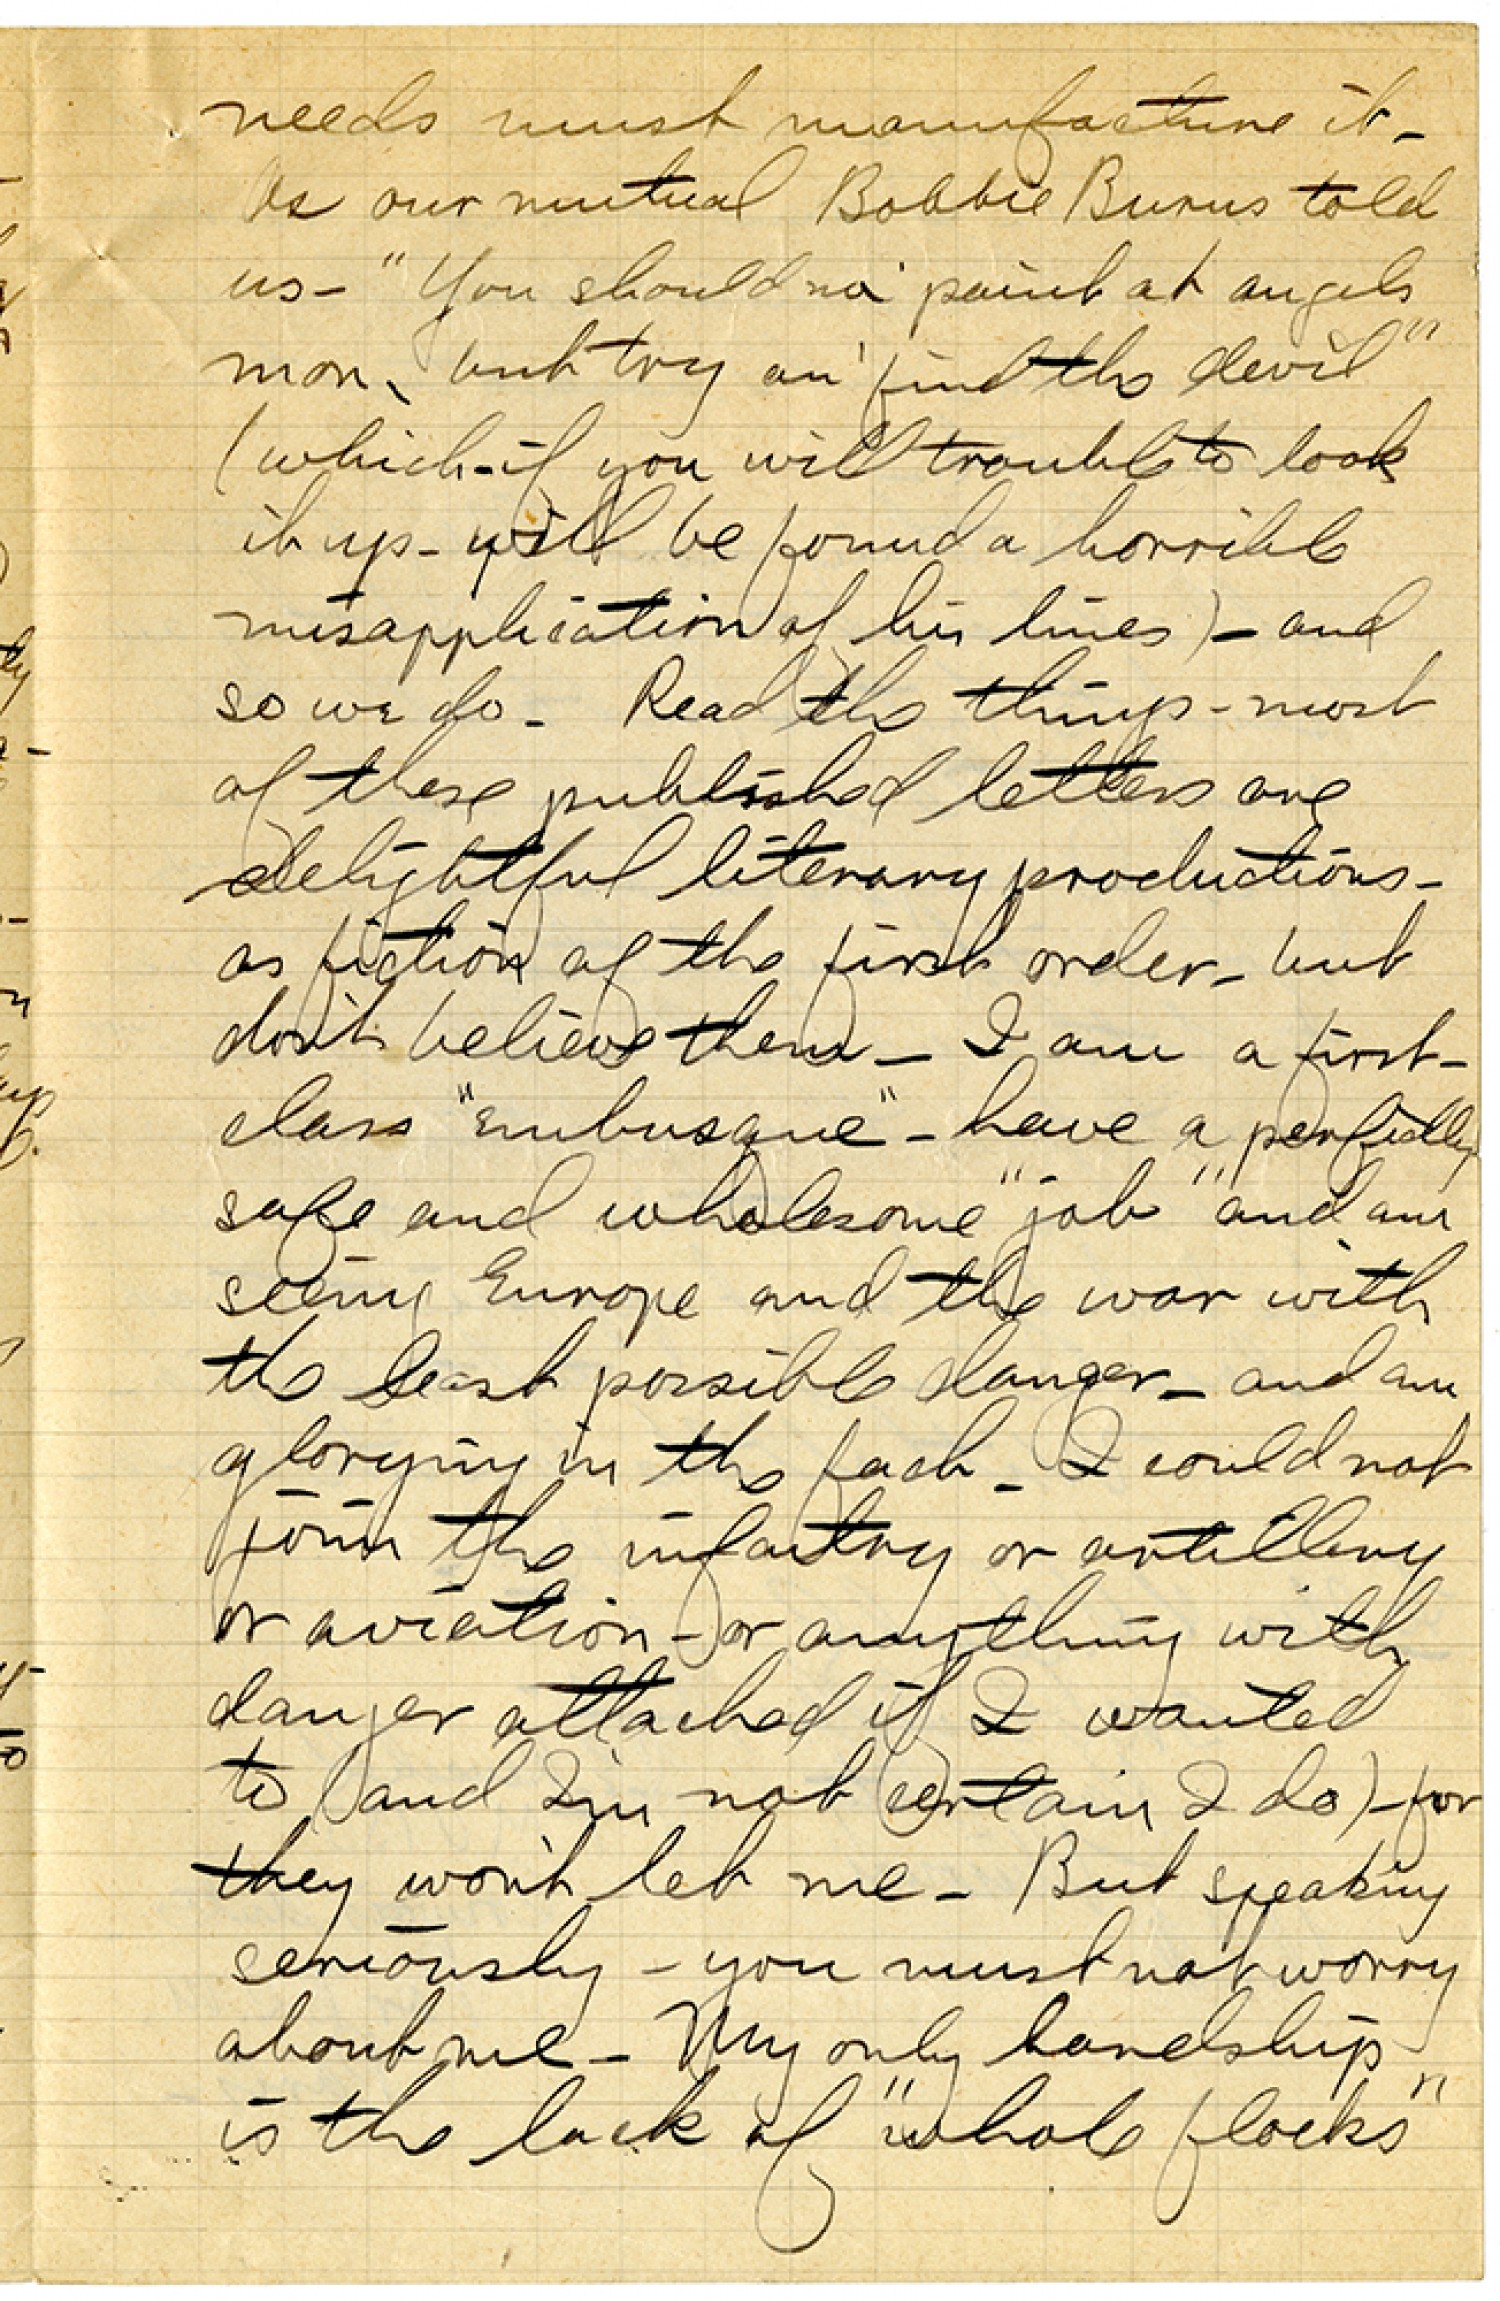 needs must manufacture it_
As our mutual Bobbie Burns told
us – "You should na' paint at angels
mon, but try an' find the devil"
(which – if you will trouble to look
it up – will be found a horrible
misapplication of his lines) – and
so we do – Read the things – most
of these published letters are
delightful literary productions –
as fiction of the first order – but
don't believe them – I am a first-
class "embusque" – have a perfectly
safe and wholesome "job" and am
seeing Europe and the war with
the least possible danger – and am
glorying in the fact – I could not
join the infantry or artillery
or aviation – or anything with
danger attached if I wanted
to (and I'm not certain I do) – for
they won't let me – But speaking
seriously – you must not worry
about me – My only hardship
is the lack of "whole flocks"